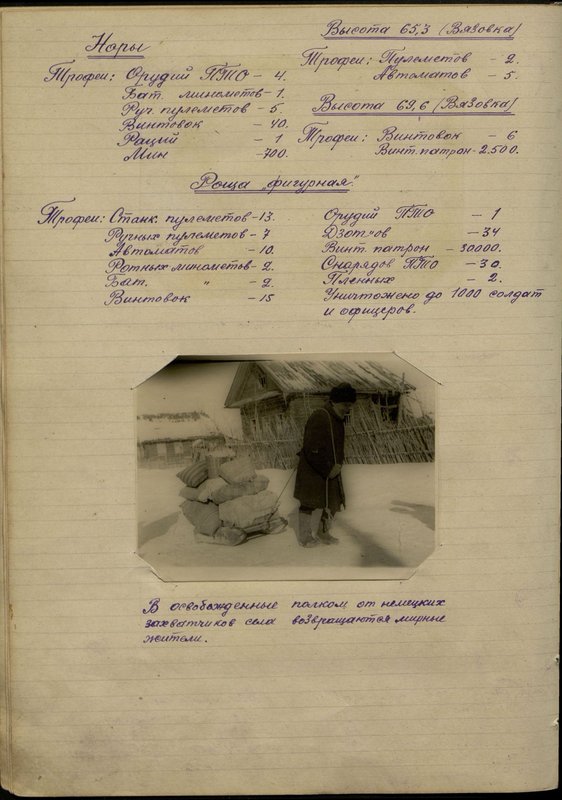 Норы
Трофеи: Орудий ПТО – 4.
Бат. минометов – 1.
Руч. пулеметов – 5
Винтовок – 40.
Раций – 1
Мин – 700.
Высота 65,3 (Вязовка)
Трофеи: Пулеметов – 2.
Автоматов – 5.
Высота 69,6 (Вязовка)
Трофеи: Винтовок – 6
Винт. патрон – 2.500.
Роща „фигурная“.
Трофеи: Станк. пулеметов – 13.
Ручных пулеметов – 7
Автоматов – 10.
Ротных минометов – 2.
Бат. „ – 2.
Винтовок – 15
Орудий ПТО – 1
Дзотов – 34
Винт. патрон – 30000.
Снарядов ПТО – 30.
Пленных – 2.
Уничтожено до 1000 солдат
и офицеров.
В освобожденные полком от немецких
захватчиков села возвращаются мирные
жители.